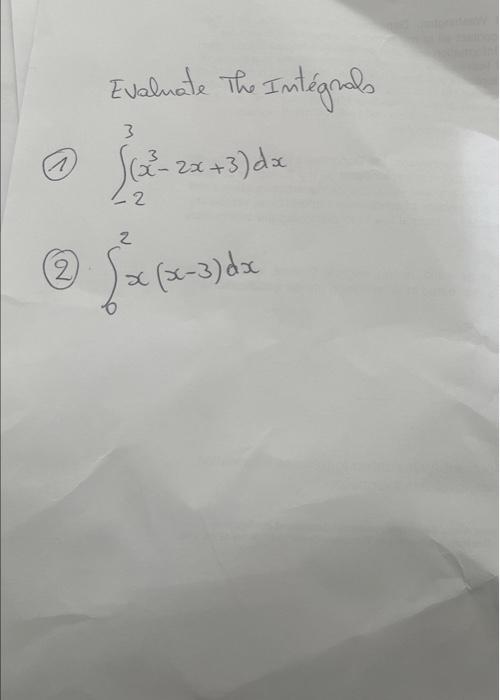 Evaluate The Intégrals
① ∫₋₂³ (x³ - 2x + 3) dx
② ∫₀² x (x - 3) dx